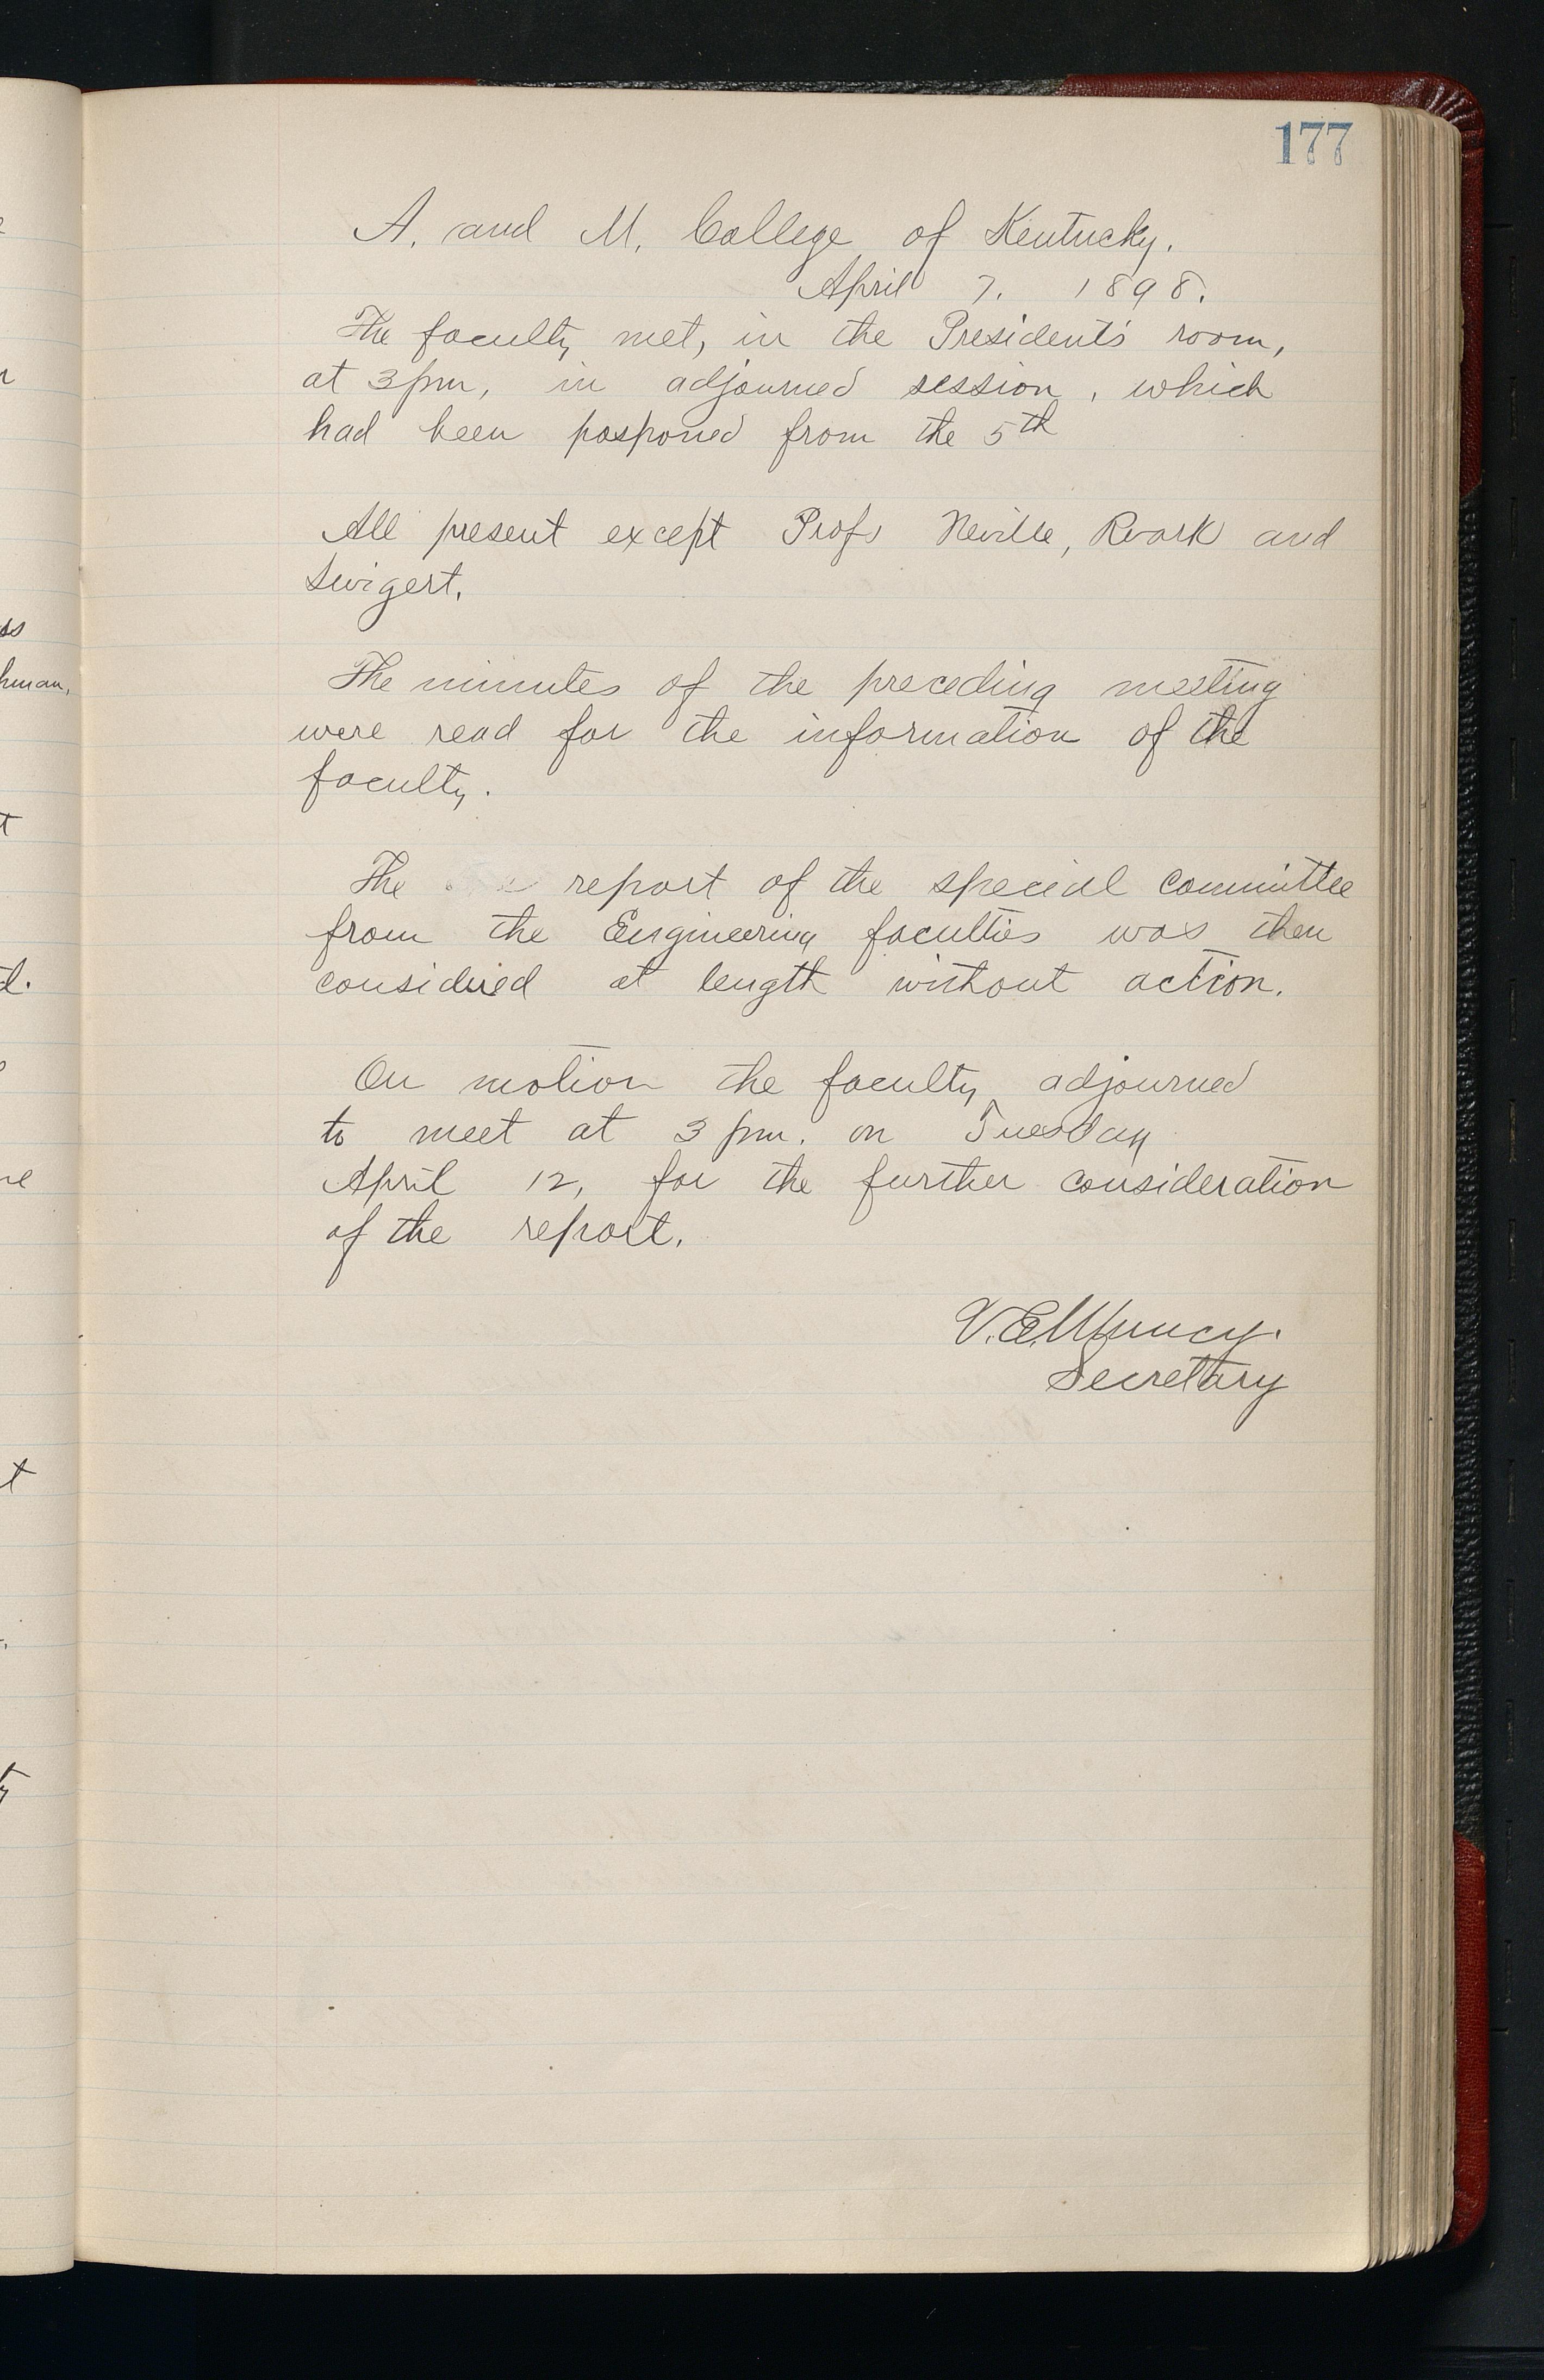 177
A. and M. College of Kentucky.
April 7. 1898.
The faculty met, in the President's room,
at 3 pm, in adjourned session, which
had been posponed from the 5th
All present except Profs Neville, Roark and
Swigert.
The minutes of the preceding meeting
were read for the information of the
faculty.
The report of the special committee
from the Engineering faculties was then
considered at length without action.
On motion the faculty adjourned
to meet at 3 pm. on Tuesday
April 12, for the further consideration
of the report.
V. E. Muncy.
Secretary